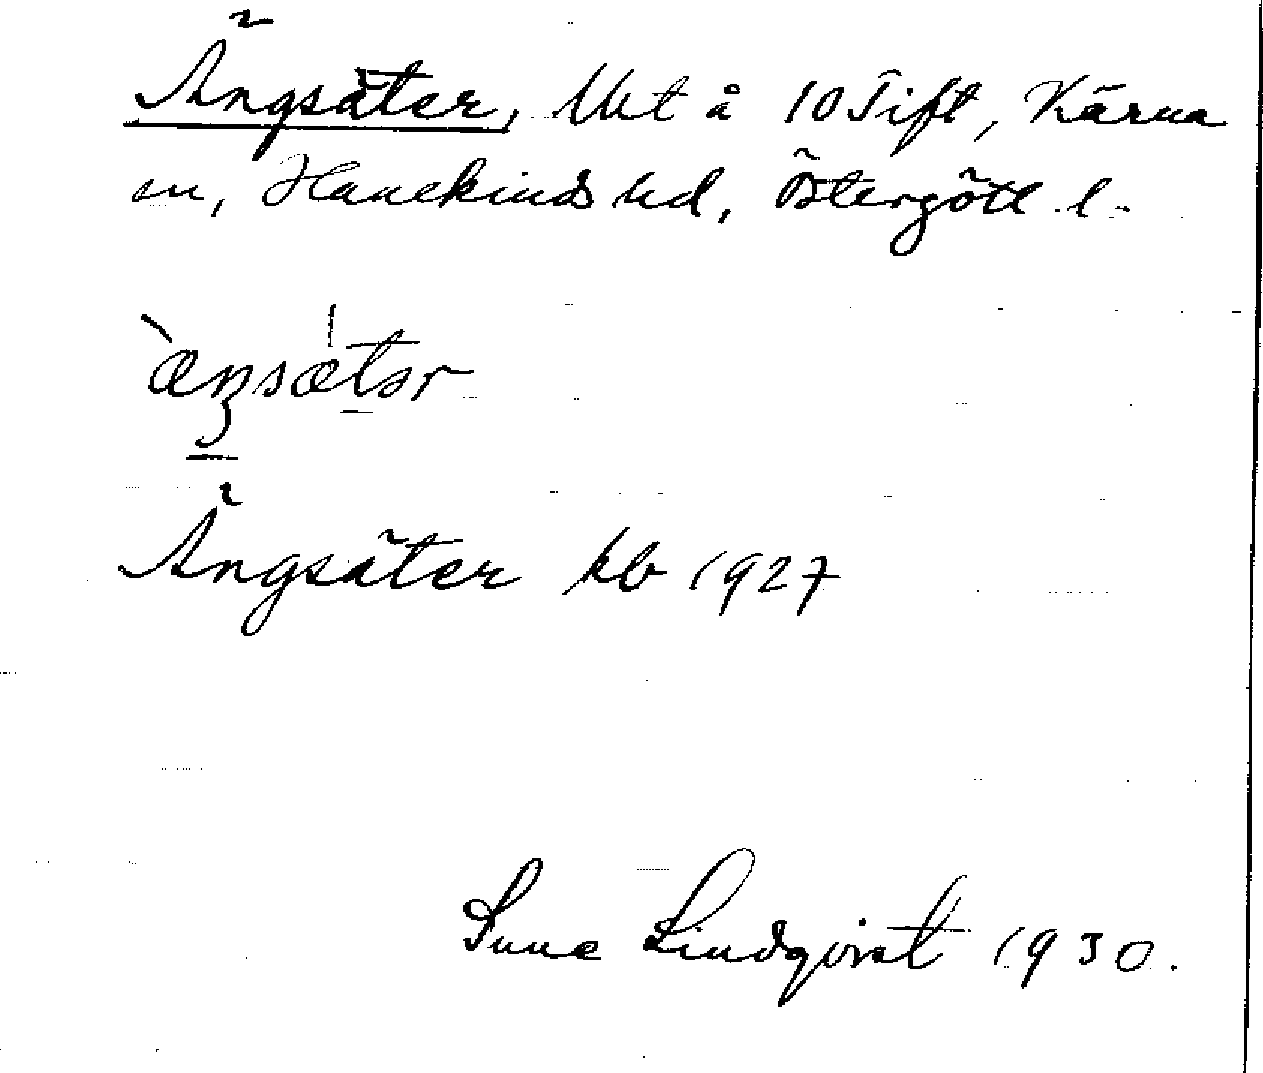 Ängsäter, Utt å 10 Tift, Kärna
sn, Hanekinds hd, Östergötl l.
æŋsætər
Ängsäter kb 1927
Sune Lindqvist 1930.